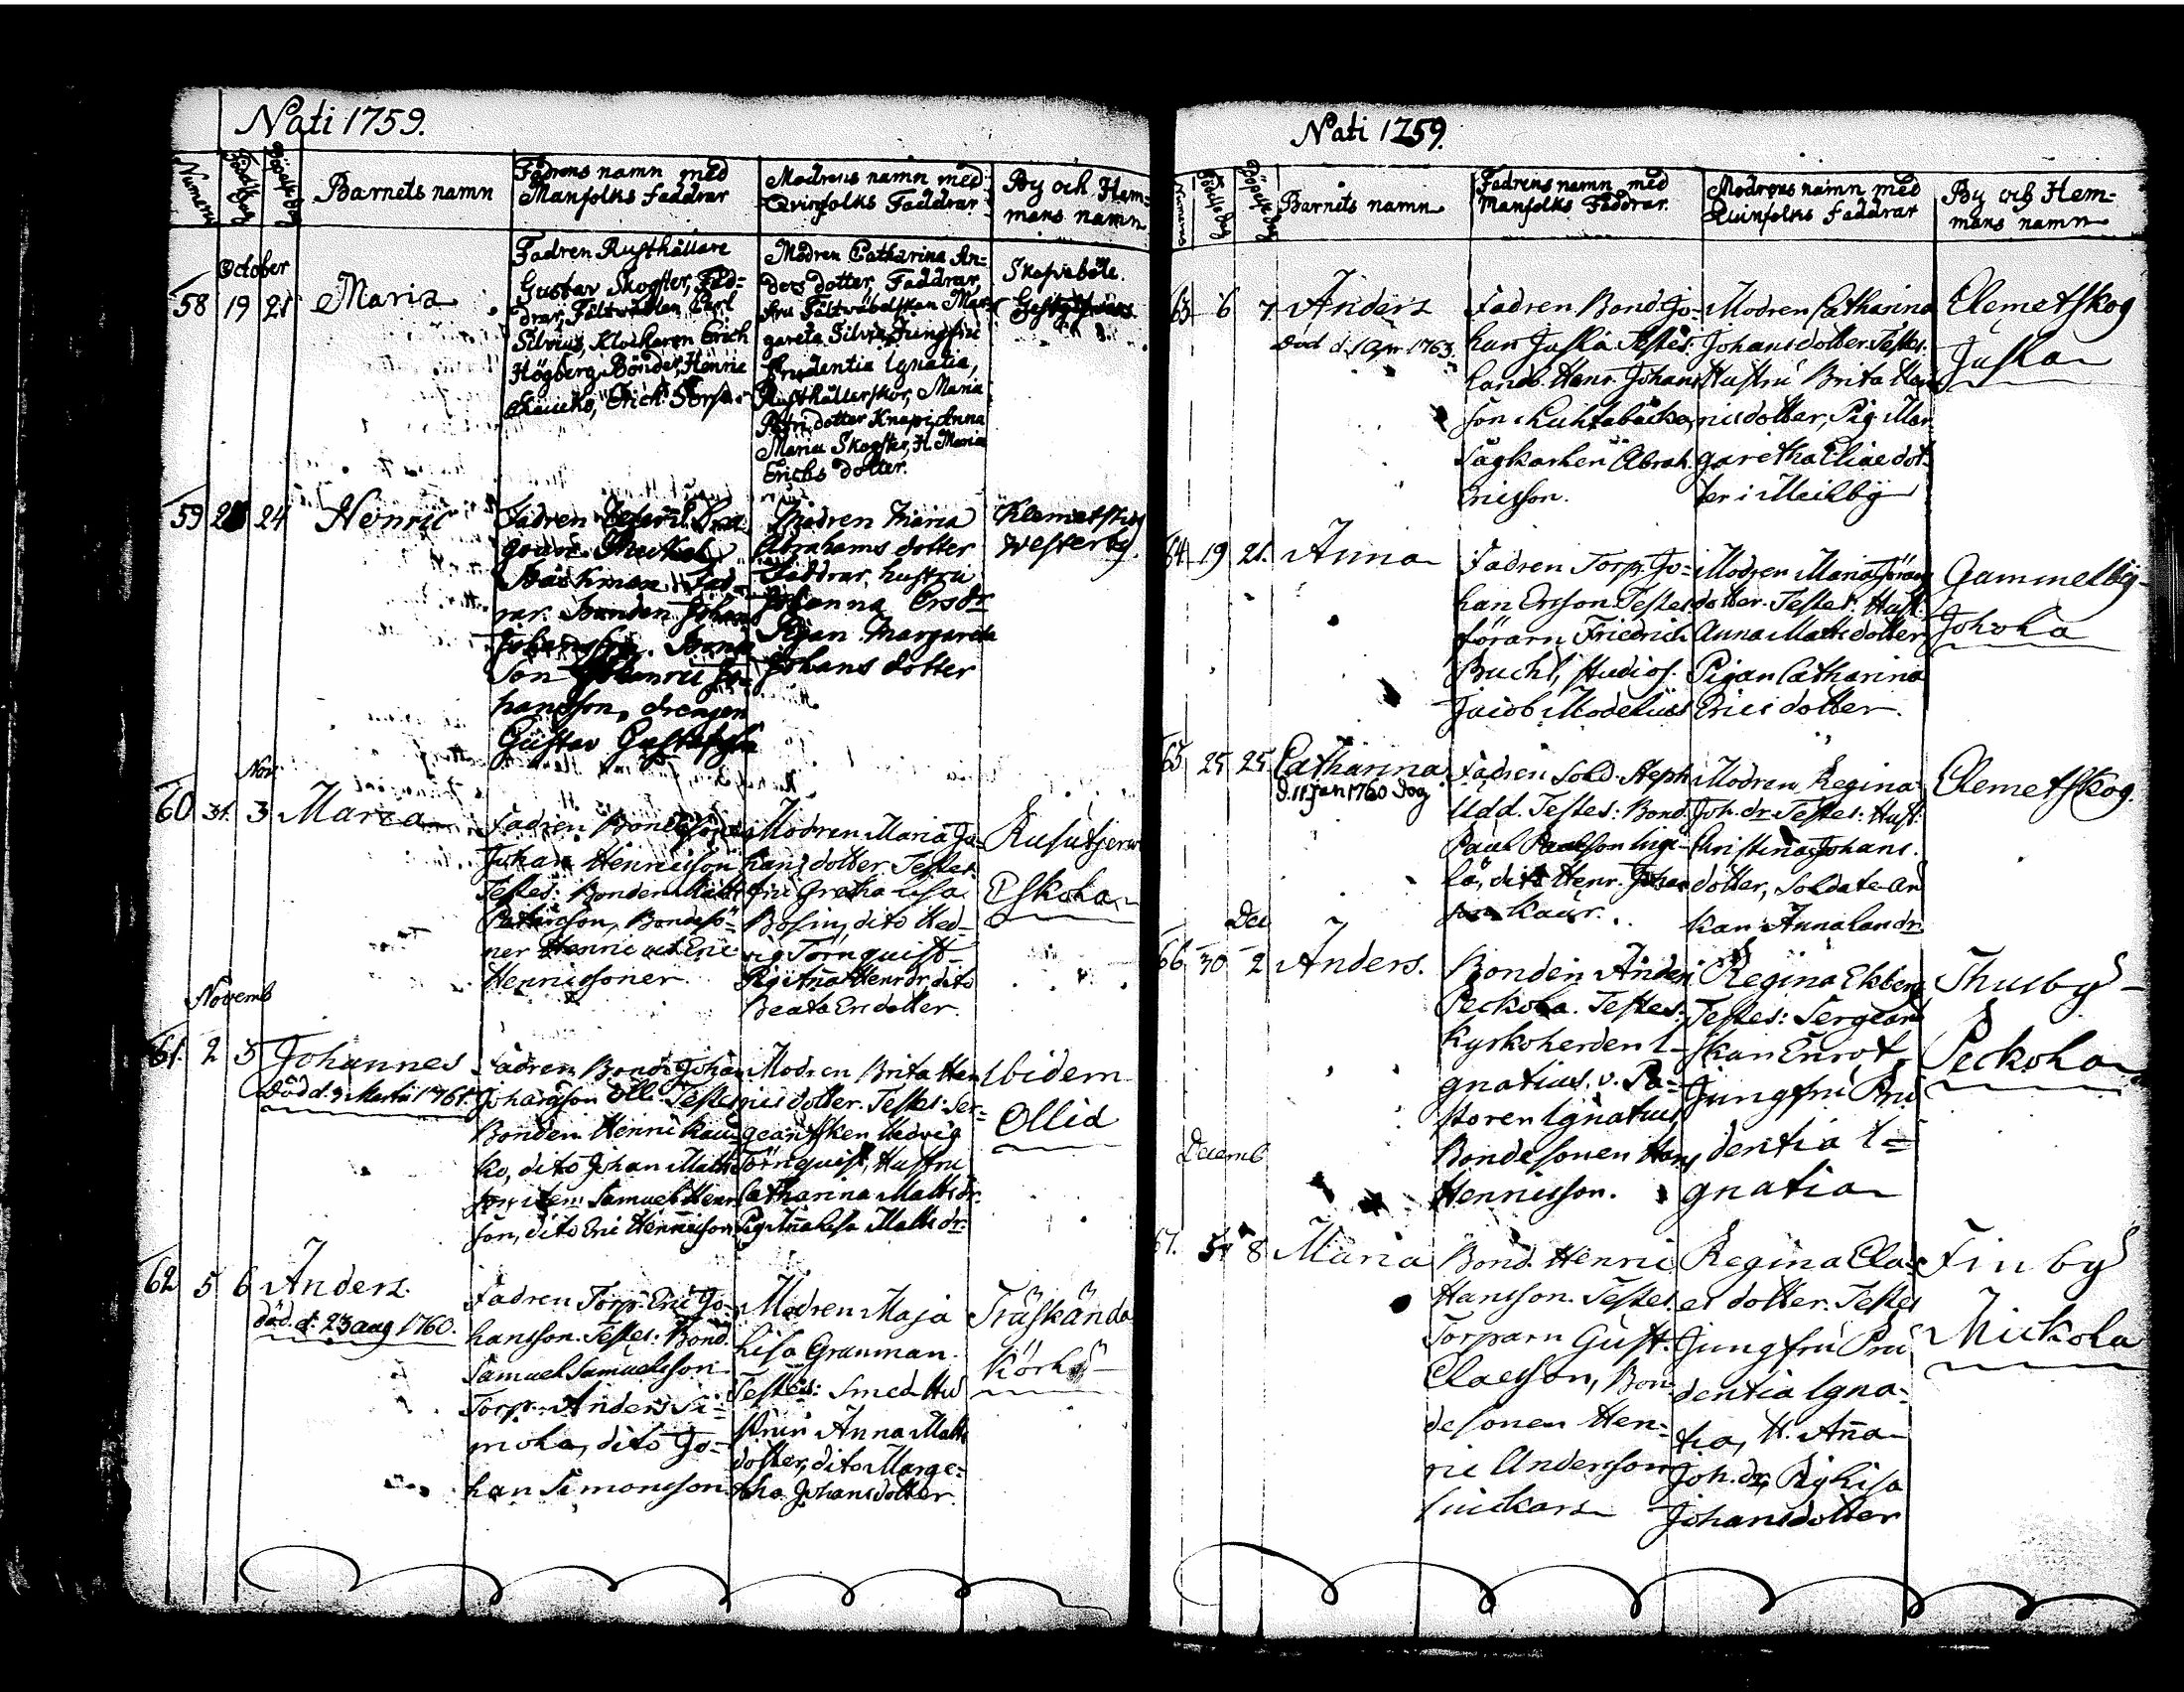 Nati 1759.
Numerus
Födelsedag
Döpelsedag
Barnets namn
Fadrens namn med
Manfolks faddrar
Modrens namn med
Qvinfolks Faddrar
By och Hem-
mans namn
October
58 19 21 Maria
Fadren Rusthållare
Gustav Skogster, Fad-
drar, Fältwäblen Carl
Silvius, Klockaren Erich
Högberg, Bönder, Henric
Erich
Modren Catharina An-
ders dotter, Faddrar,
fru Fältwäbelskan Mar-
gareta Silvia, Jungfru
Prudentia Ignatia,
Rusthållerskor, Maria
Petri dotter Knapi, Anna
Maria Skogster, H. Maria
Erichs dotter.
Skapeböle.
59 24 Henric
Fadren
Bäckman
rar. Bonden Johan
Johansson. Bonde
Son Henric Jo-
hansson, drengen
Gustav Gustafsson
Modren Maria
Abrahams dotter
Faddrar, hustru
Johanna Ersdr
Pigan Margareta
Johans dotter
Klemetskog
Westerby.
Nov.
60 31. 3 Maria
Fadren Bondeson
Johan Henricsson
Testes: Bonden Matts
Bondesö-
ner Henric och Eric
Henricssoner.
Modren Maria Jo-
hans dotter. Testes
fru Gretha Lisa
Bosin, dito Hed-
vig Törnquist
Pig. Aña Henr. dr, dito
Beata Ersdotter.
Rusutjerwi
Eskola
Novemb
61. 2 5 Johannes
Död d. 9 Martii 1761.
Fadren Bond. Johan
Johansson Olli. Testes
Bonden Henric Kau-
ko, dito Johan Matts
son item Samuel Henr
son, dito Eric Henricsson
Modren Brita Hen
rics dotter. Testes: Ser-
geantsken Hedvig
Törnquist, Hustru
Catharina Matts dr.
Pig. Aña Lisa Matts dr
Ibidem
Ollid
62 5 6 Anders.
död. d. 23 aug 1760.
Fadren Torp. Eric Jo-
hansson. Testes: Bond.
Samuel Samuelsson
Torp. Anders Si-
mola, dito Jo-
han Simonsson
Modren Maja
Lisa Granman.
Testes: Smed Hu
strun Anna Matts
dotter, dito Marge-
tha Johansdotter
Träskända
Körkö
Nati 1759.
Numerus
Födelsedag
Döpelsedag
Barnets namn
Fadrens namn med
Manfolks Faddrar.
Modrens namn med
Qvinfolks faddrar
By och Hem-
mans namn
63 6 7 Anders
död d. 1 Apr. 1763.
Fadren Bond. Jo-
han Juska. Testes:
Landb. Henr. Johans
son Luhtabacka,
Sågkarlen Abrah.
Ericsson.
Modren Catharina
Johansdotter. Testes.
Hustru Brita Hen
ricsdotter, Pig. Mar-
garetha Eliae dot-
ter i Meilby
Clemetskog
Juska
64 19 21. Anna
Fadren Torp. Jo-
han Ersson. Testes
förarn Friedrich
Bucht, studios.
Jacob Modelius
Modren Maria Jörans
dotter. Testes: Hust.
Anna Mattsdotter
Pigan Catharina
Erics dotter.
Gammelby
Johola
65 25 25 Catharina
d. 11 Jan 1760 dog
Fadren Sold. Steph
Udd. Testes: Bond.
Paul Paulsson
dito Henr. Johan
son Kaur.
Modren Regina
Joh. dr. Testes: Hust.
Christina Johans.
dotter, Soldate-än
kan Anna Lars dr
Clemetskog.
Dec
66 30 2 Anders.
Bonden Anders
Peckola. Testes:
Kyrkoherden I-
gnatius. v. Pa-
storen Ignatius
Bondesonen Hans
Henricsson.
Regina Ekberg
Testes: Sergeant
skan Enrot,
Jungfru Pru
dentia I-
gnatia
Thusby
Peckola
Decemb
67. 8 Maria
Bond. Henric
Hansson. Testes.
Torparn Gust.
Claesson, Bon-
desonen Hen-
ric Andersson
Regina Cla-
es dotter. Testes
Jungfru Pru
dentia Igna-
tia, H. Aña
Joh. dr, Pig Lisa
Johansdotter
Finby
Mickola